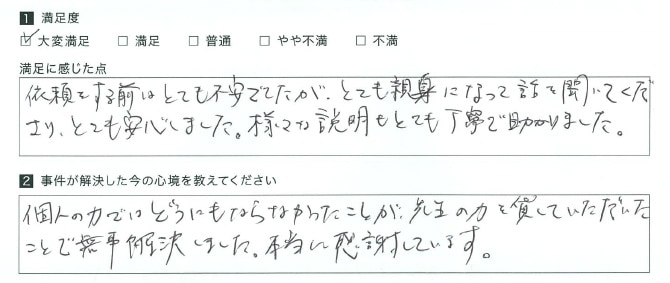 1 満足度
☑ 大変満足 □ 満足 □ 普通 □ やや不満 □ 不満
満足に感じた点
依頼をする前はとても不安でしたが、とても親身になって話を聞いてくだ
さり、とても安心しました。様々な説明もとても丁寧で助かりました。
2 事件が解決した今の心境を教えてください
個人の力ではどうにもならなかったことが、先生の力を貸していただいた
ことで無事解決しました。本当に感謝しています。